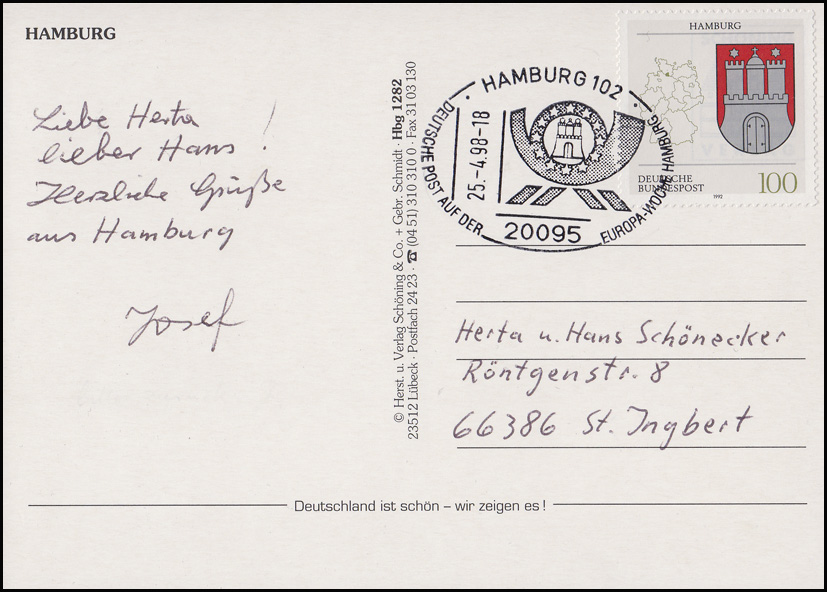 HAMBURG
Liebe Herta
lieber Hans !
Herzliche Grüße
aus Hamburg
Josef
© Herst. u. Verlag Schöning & Co. + Gebr. Schmidt · Hbg 1282
23512 Lübeck · Postfach 24 23 · ☎ (04 51) 310 310 0 · Fax 31 03 130
HAMBURG 102
25.-4.98-18
DEUTSCHE POST AUF DER
EUROPA-WOCHE HAMBURG
20095
HAMBURG
DEUTSCHE
BUNDESPOST
100
1992
Herta u. Hans Schönecker
Röntgenstr. 8
66386 St. Ingbert
Deutschland ist schön – wir zeigen es !